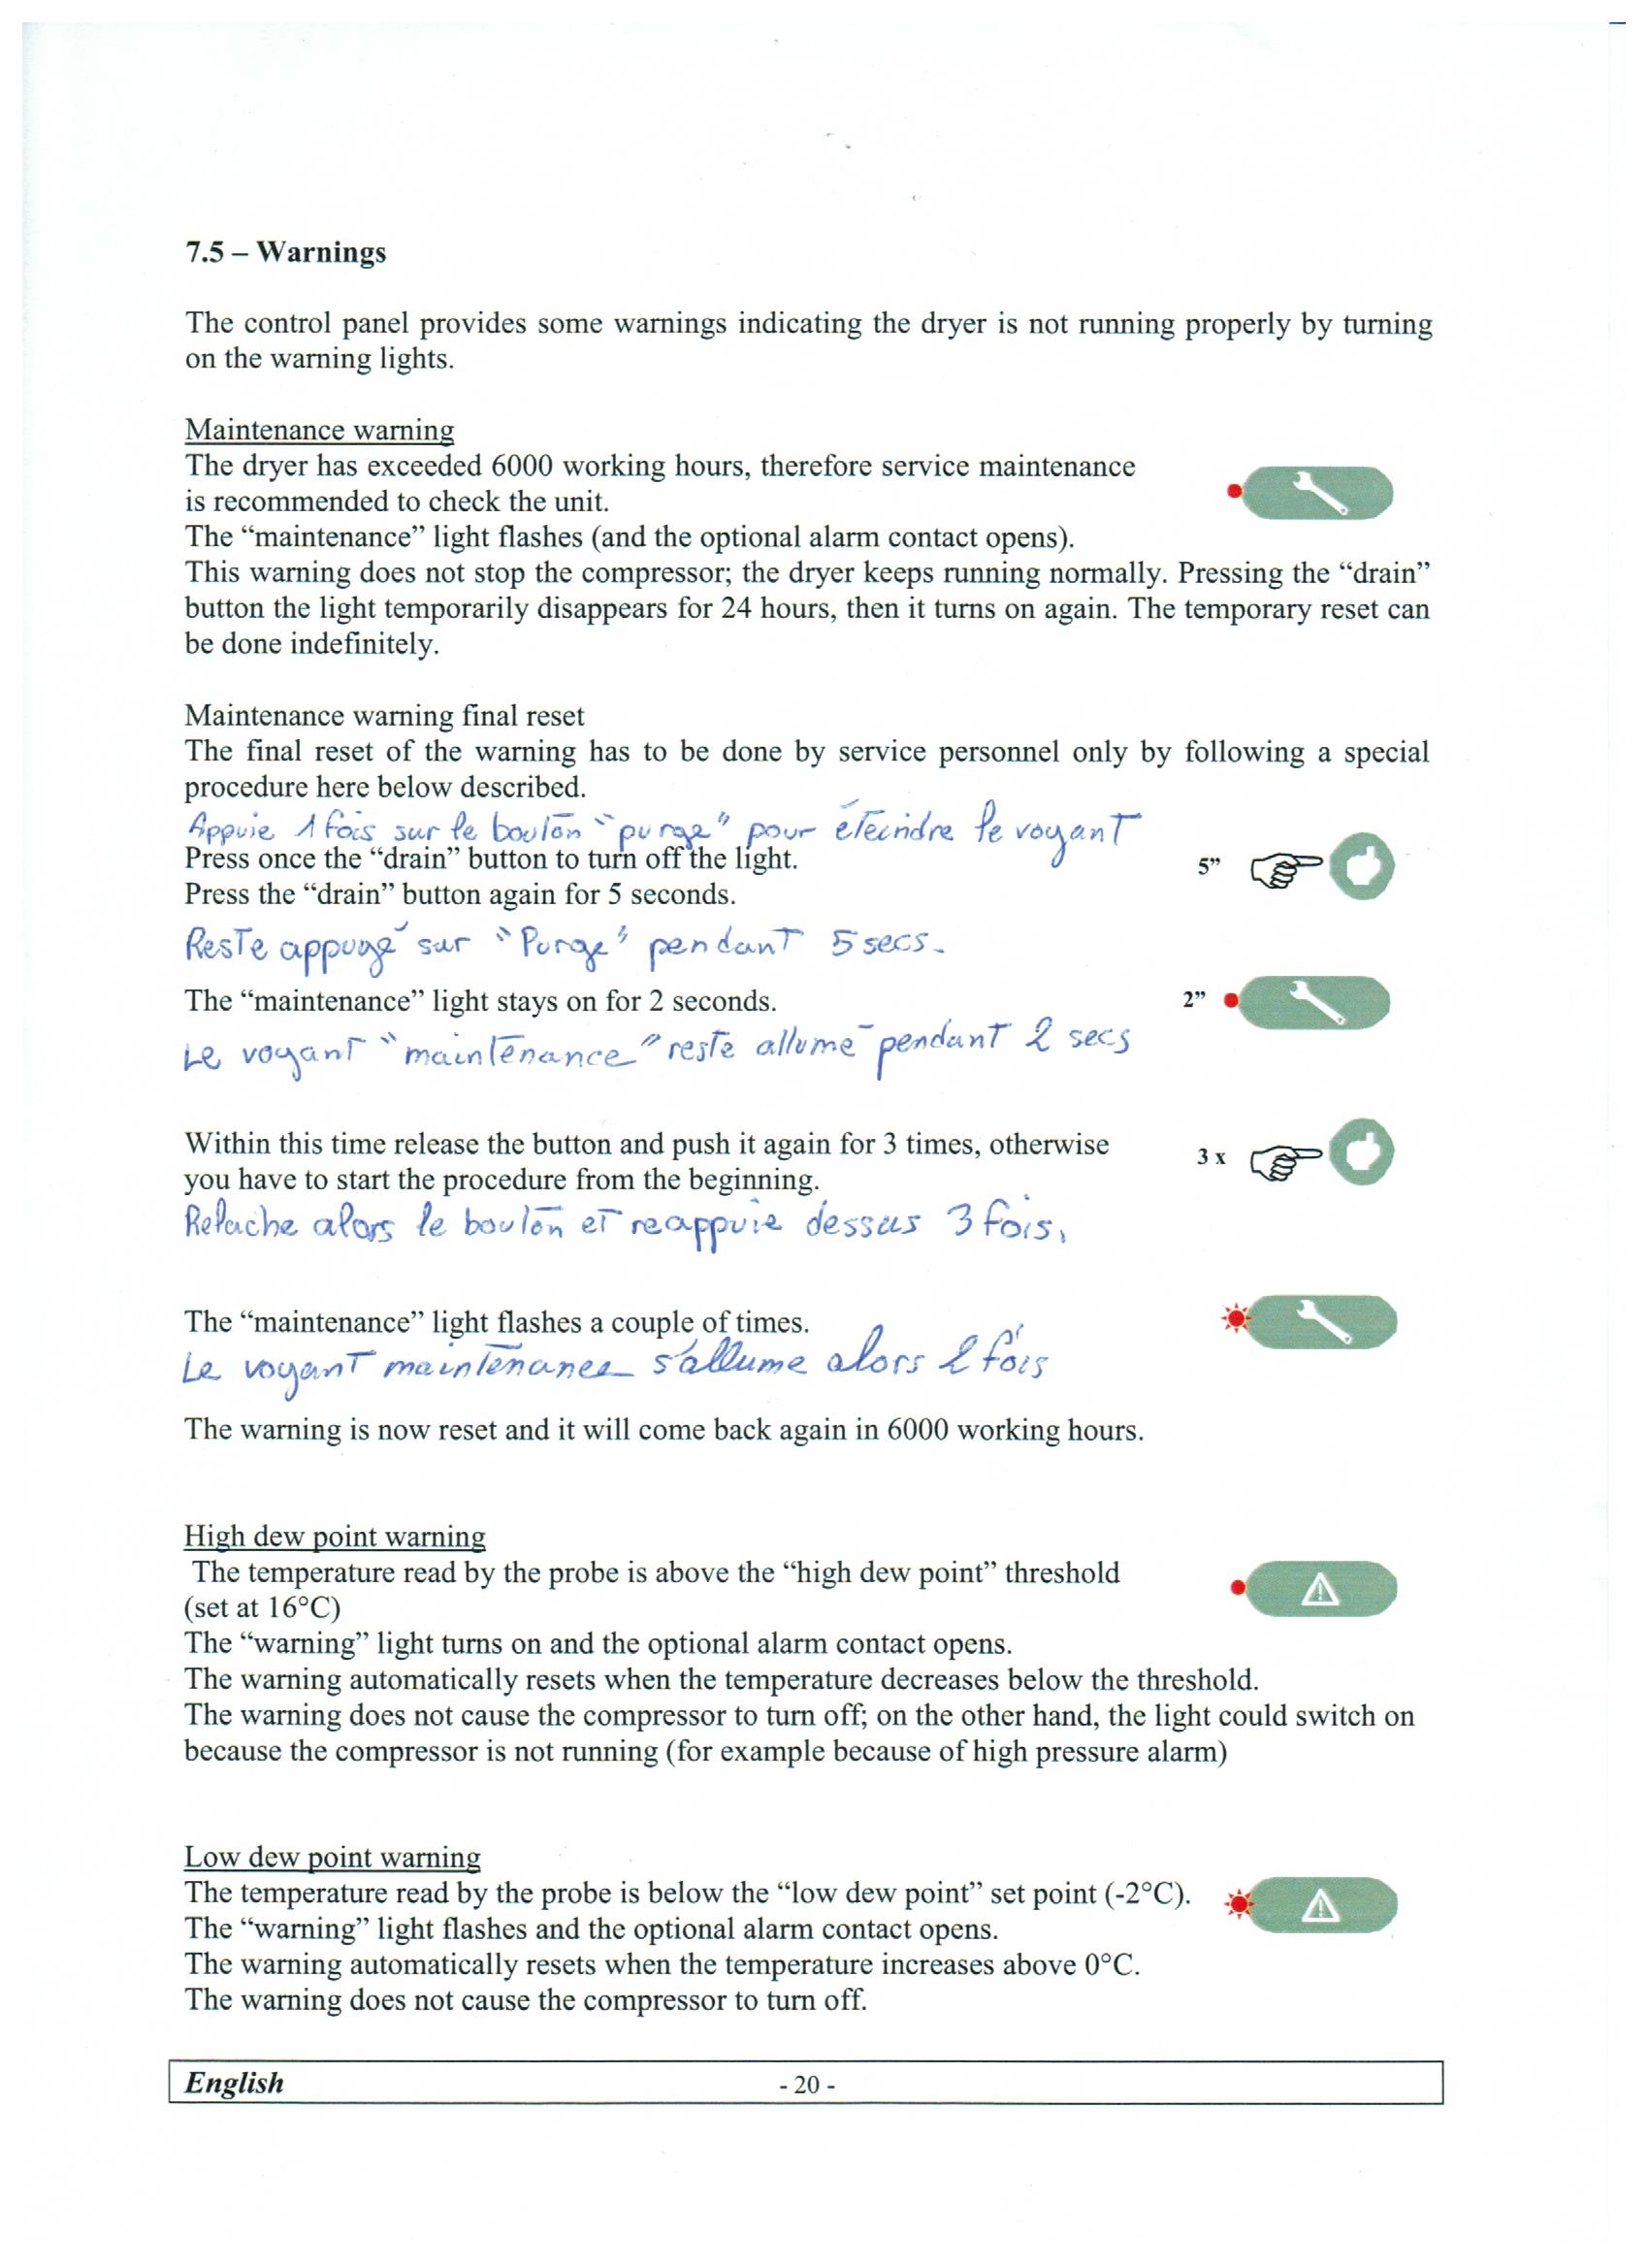 7.5 – Warnings
The control panel provides some warnings indicating the dryer is not running properly by turning
on the warning lights.
Maintenance warning
The dryer has exceeded 6000 working hours, therefore service maintenance
is recommended to check the unit.
The “maintenance” light flashes (and the optional alarm contact opens).
This warning does not stop the compressor; the dryer keeps running normally. Pressing the “drain”
button the light temporarily disappears for 24 hours, then it turns on again. The temporary reset can
be done indefinitely.
Maintenance warning final reset
The final reset of the warning has to be done by service personnel only by following a special
procedure here below described.
Appuie 1 fois sur le bouton “purge” pour éteindre le voyant
Press once the “drain” button to turn off the light.
5”
Press the “drain” button again for 5 seconds.
Reste appuyé sur “Purge” pendant 5 secs.
The “maintenance” light stays on for 2 seconds.
2”
Le voyant “maintenance” reste allumé pendant 2 secs
Within this time release the button and push it again for 3 times, otherwise
3 x
you have to start the procedure from the beginning.
Relache alors le bouton et reappuie dessus 3 fois,
The “maintenance” light flashes a couple of times.
Le voyant maintenance s'allume alors 2 fois
The warning is now reset and it will come back again in 6000 working hours.
High dew point warning
The temperature read by the probe is above the “high dew point” threshold
(set at 16°C)
The “warning” light turns on and the optional alarm contact opens.
The warning automatically resets when the temperature decreases below the threshold.
The warning does not cause the compressor to turn off; on the other hand, the light could switch on
because the compressor is not running (for example because of high pressure alarm)
Low dew point warning
The temperature read by the probe is below the “low dew point” set point (-2°C).
The “warning” light flashes and the optional alarm contact opens.
The warning automatically resets when the temperature increases above 0°C.
The warning does not cause the compressor to turn off.
English
- 20 -